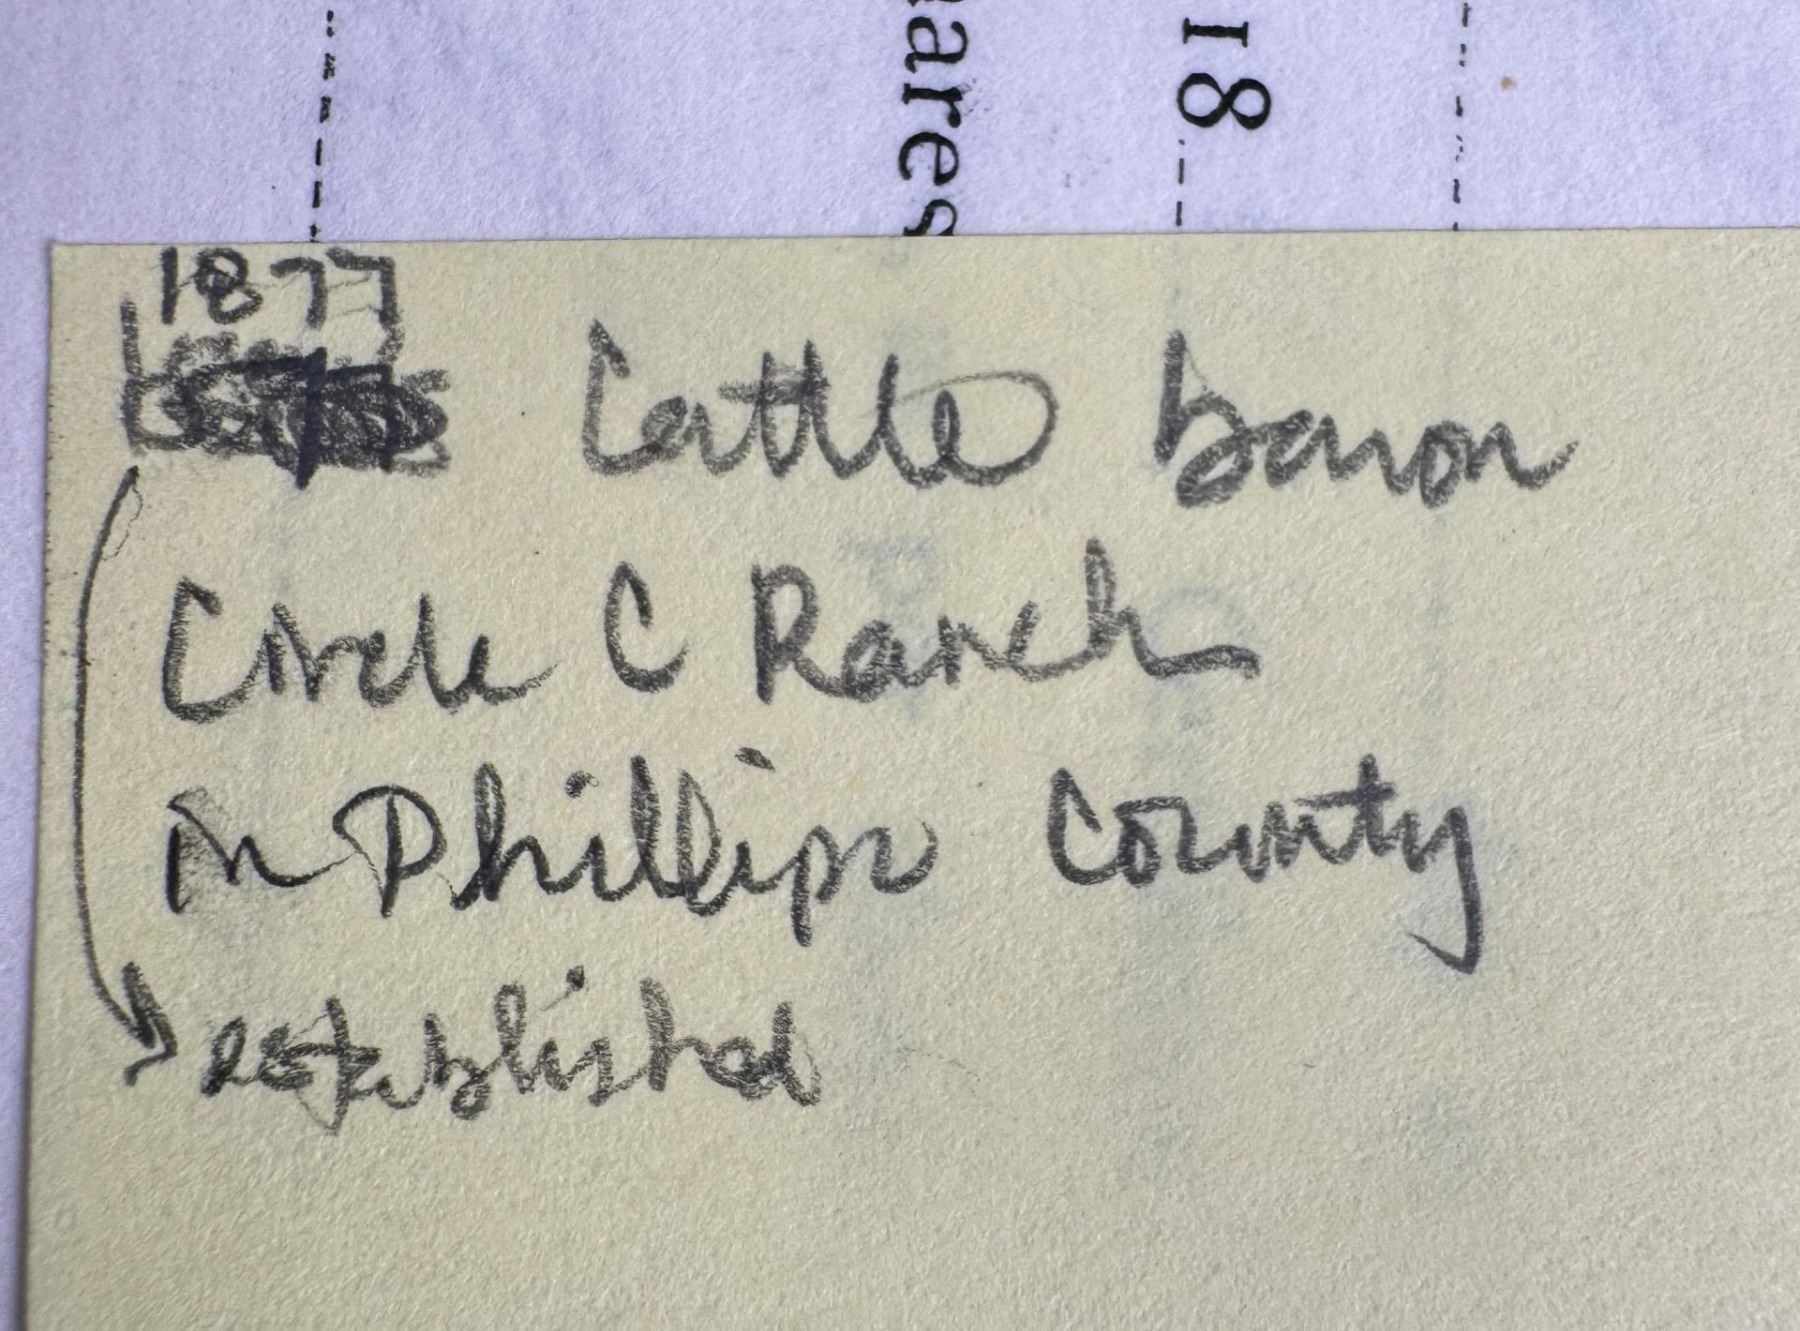 ares
18
1877
Cattle baron
Circle C Ranch
in Phillips County
established